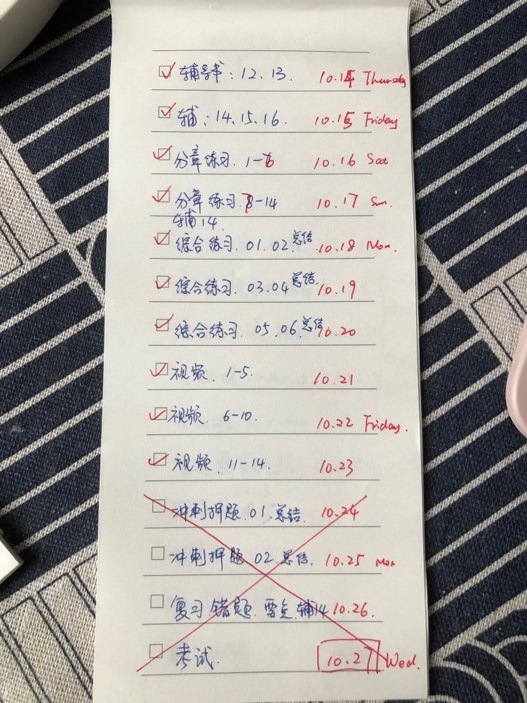 辅导书：12.13. 10.14 Thursday
辅：14.15.16. 10.15 Friday
分章练习. 1-6 10.16 Sat
分章练习. 8-14 10.17 Sun.
辅14.
综合练习. 01.02 总结 10.18 Mon.
综合练习. 03.04 总结 10.19
综合练习. 05.06. 总结 10.20
视频. 1-5 10.21
视频. 6-10 10.22 Friday.
视频. 11-14. 10.23
冲刺押题. 01. 总结. 10.24
冲刺押题 02. 总结. 10.25 Mon
复习 错题. 辅14 10.26.
考试. 10.27 Wed.